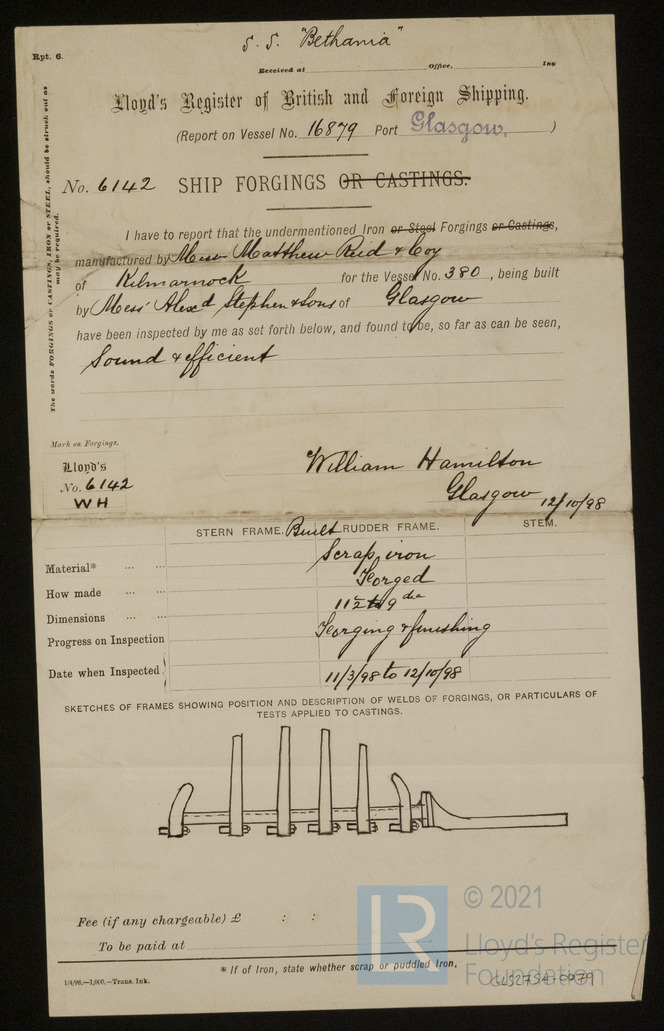 S. S. "Bethania"
Rpt. 6.
Received at Office, 188
Lloyd's Register of British and Foreign Shipping.
(Report on Vessel No. 16879 Port Glasgow. )
No. 6142 SHIP FORGINGS OR CASTINGS.
The words FORGINGS or CASTINGS, IRON or STEEL, should be struck out as
may be required.
I have to report that the undermentioned Iron or Steel Forgings or Castings,
manufactured by Messrs Matthew Reid & Coy
of Kilmarnock for the Vessel No. 380, being built
by Mess Alexd Stephen & Sons of Glasgow
have been inspected by me as set forth below, and found to be, so far as can be seen,
Sound & efficient
Mark on Forgings.
Lloyd's
No. 6142
WH
William Hamilton
Glasgow 12/10/98
STERN FRAME. Built RUDDER FRAME. STEM.
Material* ... ... Scrap iron
How made ... ... Forged
Dimensions ... ... 11½ to 9 dia
Progress on Inspection Forging & finishing
Date when Inspected 11/3/98 to 12/10/98
SKETCHES OF FRAMES SHOWING POSITION AND DESCRIPTION OF WELDS OF FORGINGS, OR PARTICULARS OF
TESTS APPLIED TO CASTINGS.
Fee (if any chargeable) £ : :
To be paid at
* If of Iron, state whether scrap or puddled Iron.
1/4/98.—1,000.—Trans. Ink.
LR
© 2021
Lloyd's Register
Foundation
GLS2754-0979